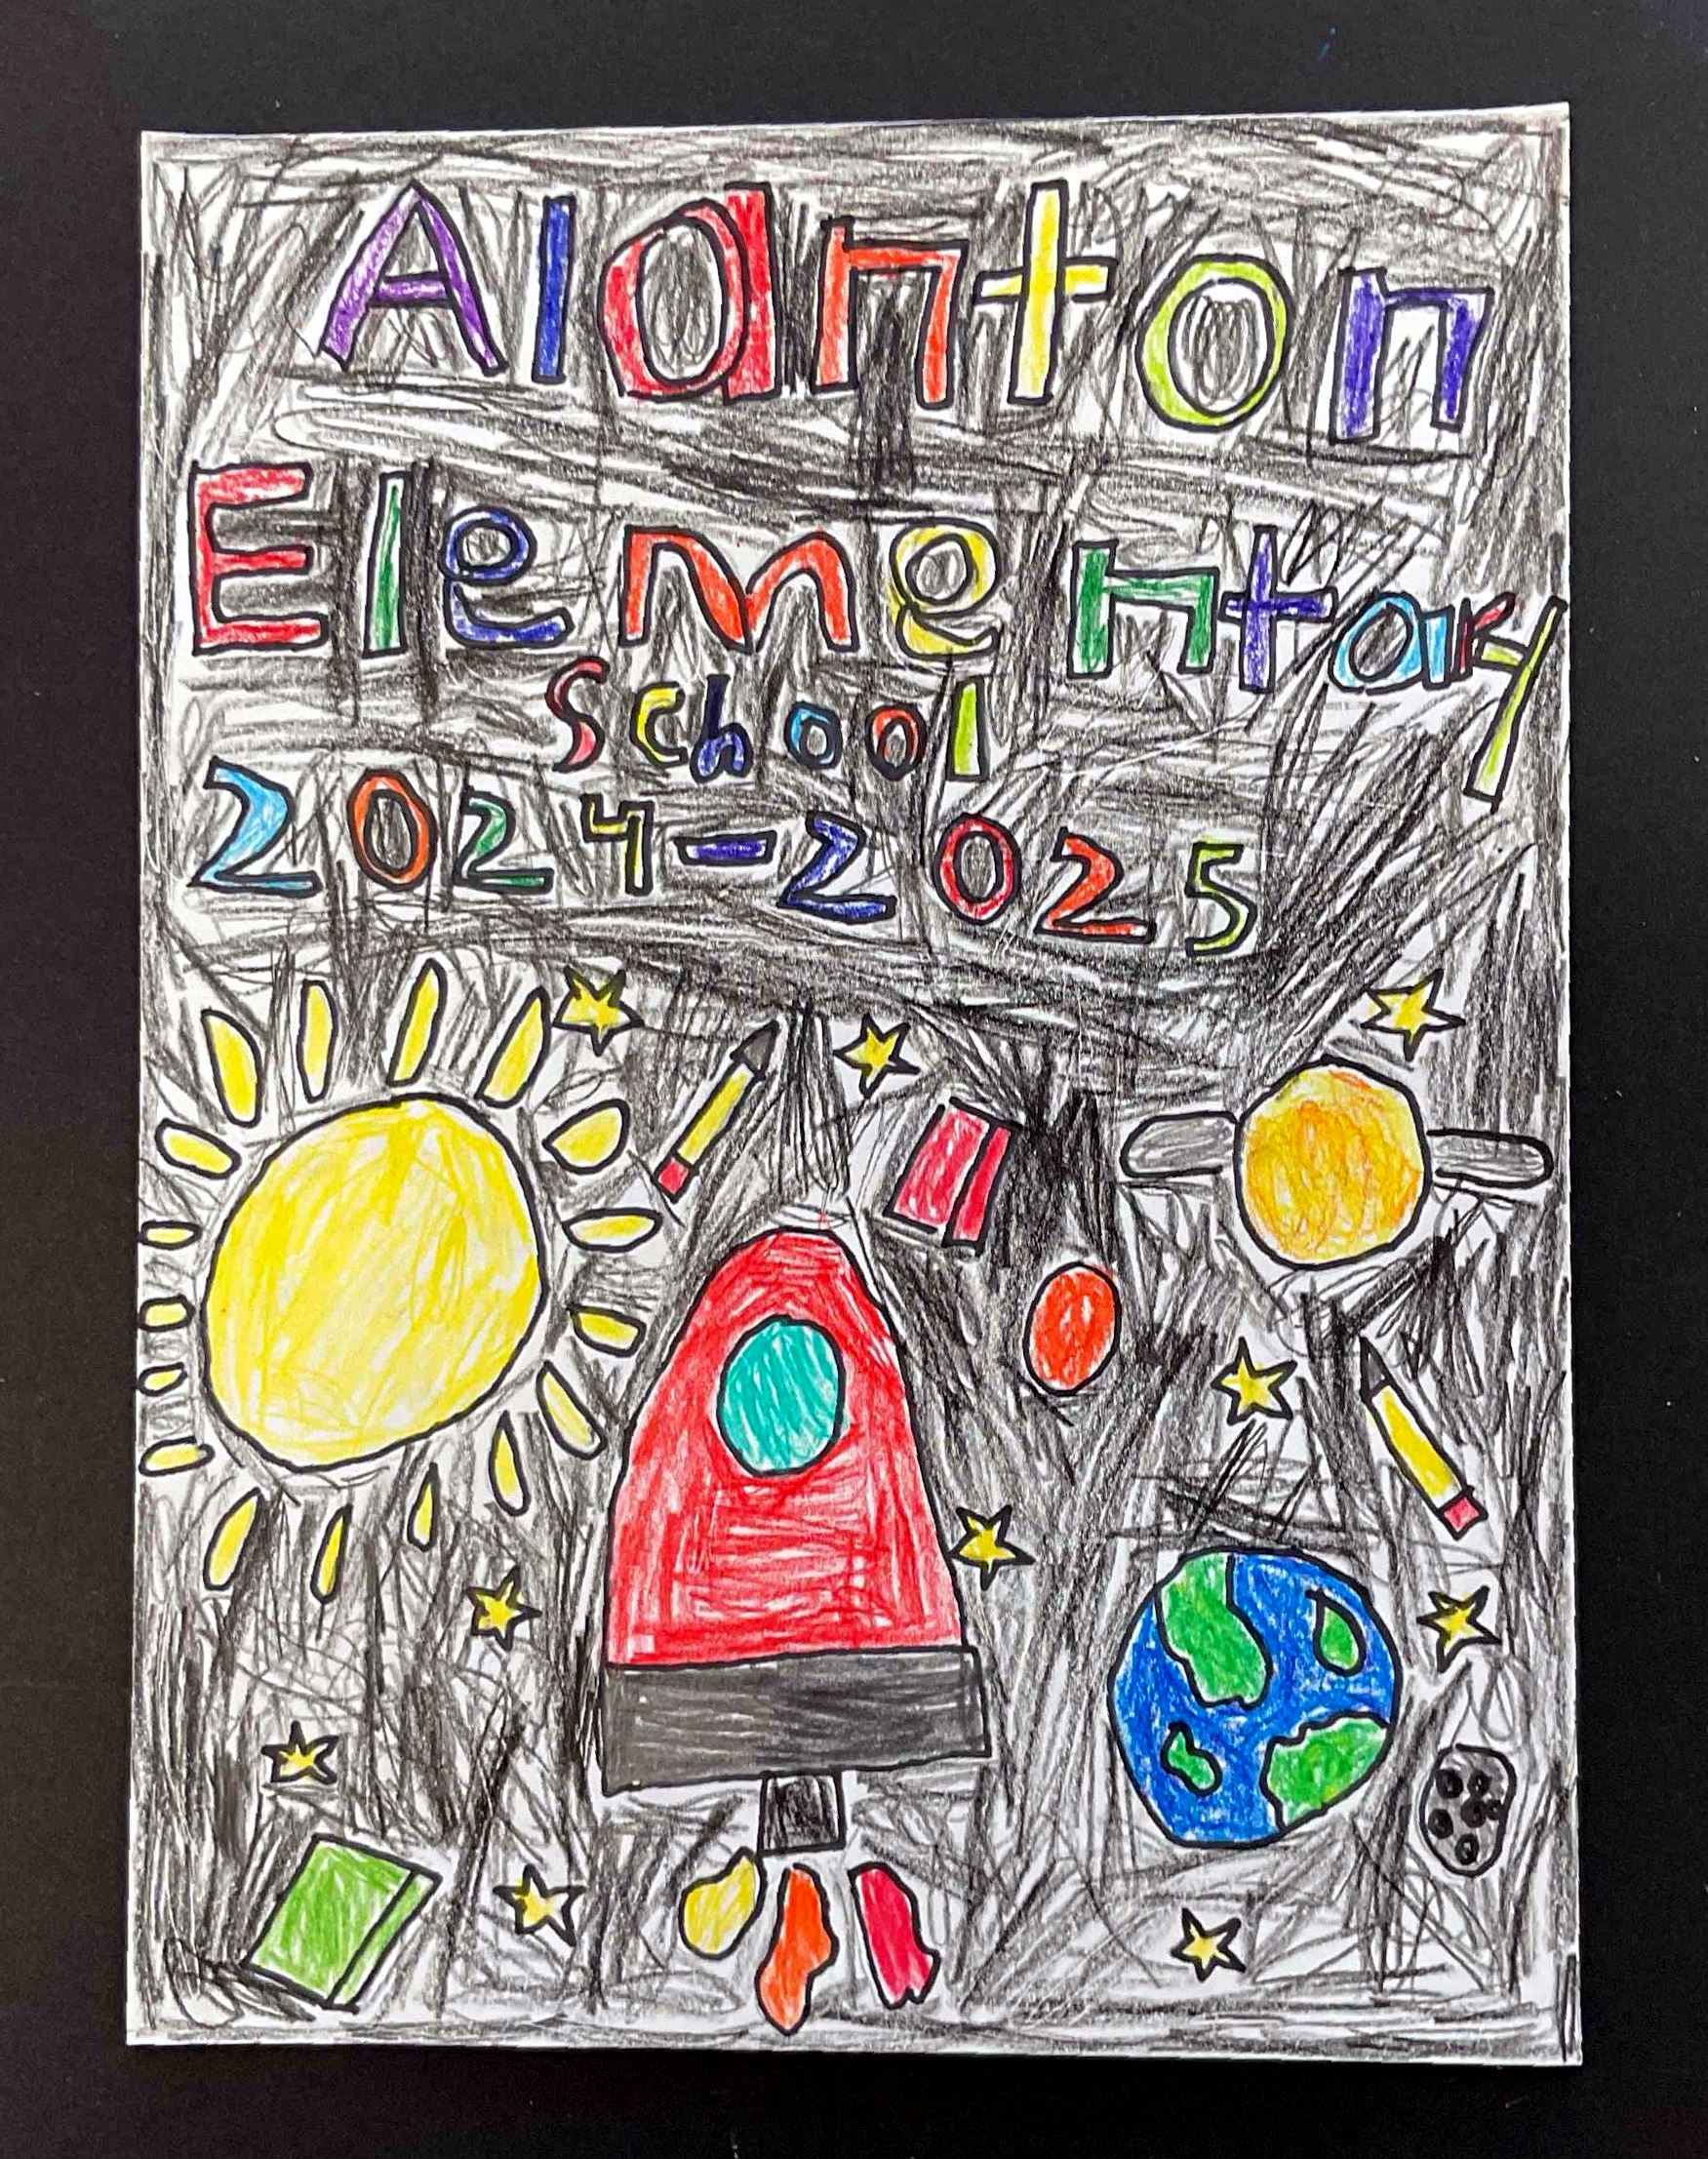 Alanton
Elementary
School
2024-2025